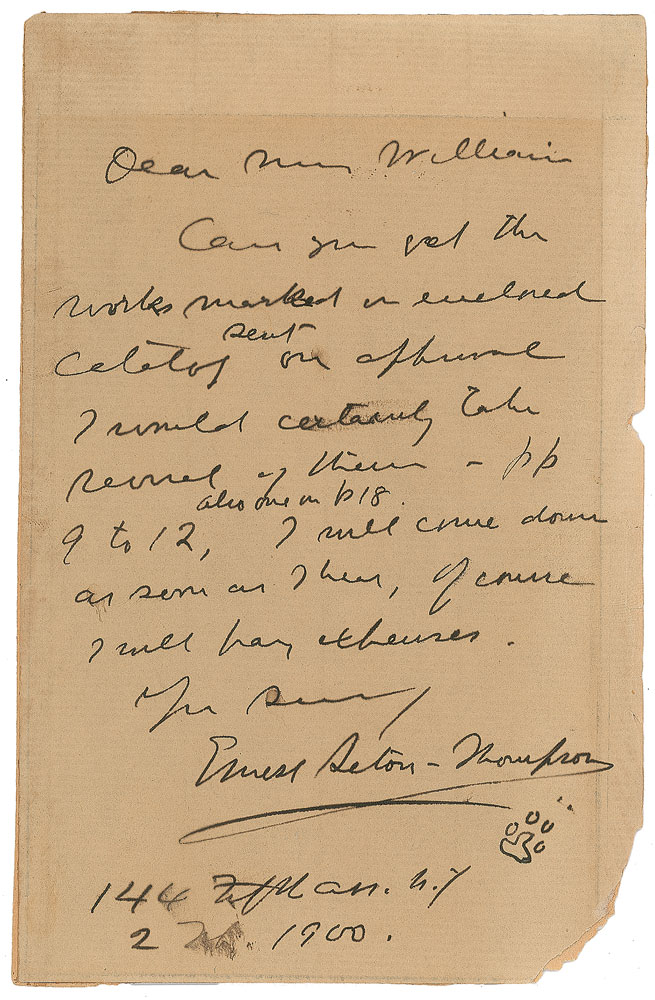 Dear Miss William
Can you get the
works marked in enclosed
sent
catalog on approval
I would certainly take
several of them - pp
also one on p18.
9 to 12, I will come down
as soon as I hear, Of course
I will pay expenses.
Yrs
Ernest Seton-Thompson
144 Fifth Ave. N.Y
2 1900.